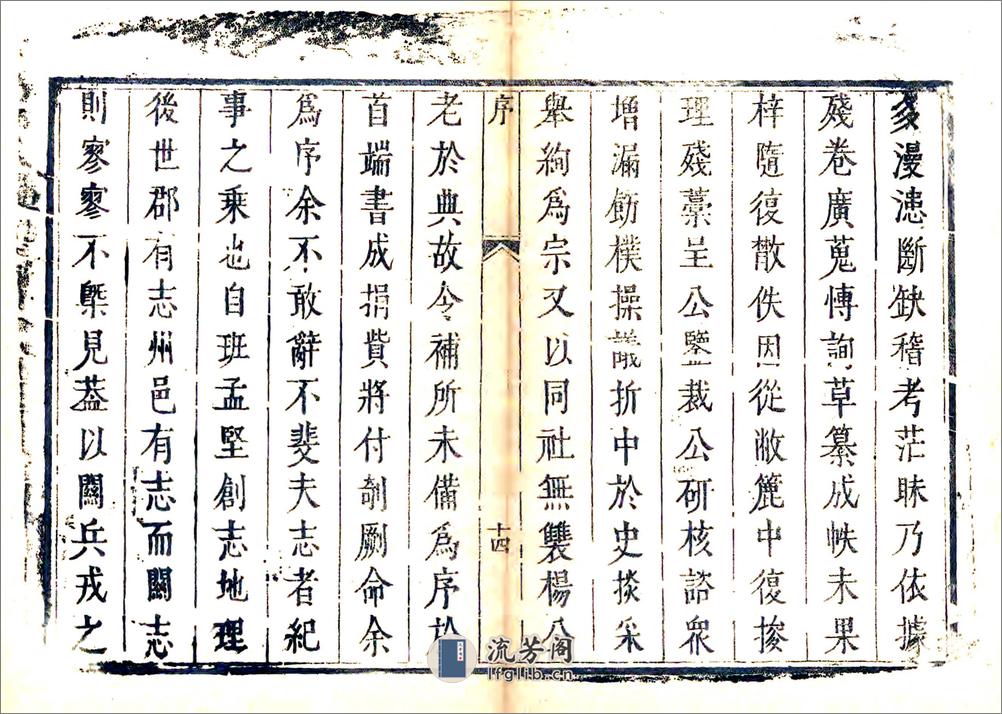 多漫漶斷缺稽考茫昧乃依據
殘卷廣蒐博詢草纂成帙未果
梓隨復散佚因從敝簏中復搜
理殘藁呈公鑒裁公研核諮衆
增漏飭樸操議折中於史掞采
舉絢爲宗又以同社無雙楊公
序
十四
老於典故令補所未備爲序於
首端書成捐貲將付剞劂命余
爲序余不敢辭不斐夫志者紀
事之乗也自班孟堅創志地理
後世郡有志州邑有志而關志
則寥寥不槩見葢以關兵戎之
流芳阁
lfglib.cn